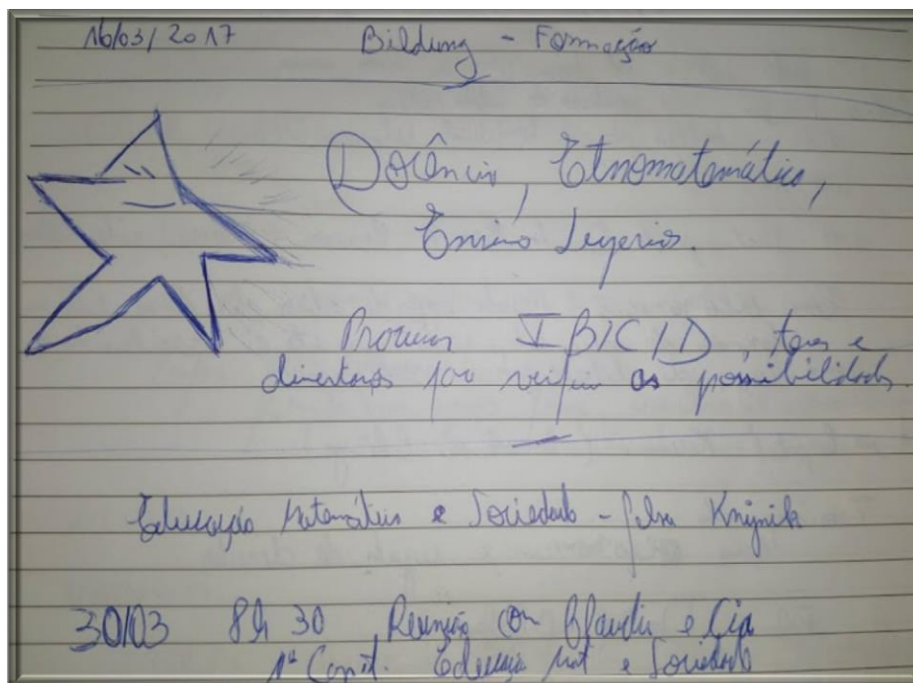 16/03/2017 Bildung - Formação
Docência, Etnomatemática,
Ensino Superior.
Procurar IBICID, teses e
para verificar as possibilidades.
Educação Matemática e Sociedade - Gelsa Knijnik
30/03 8h 30 Reunião com Claudia e Cia
1º Capít. Educação Mat e Sociedade